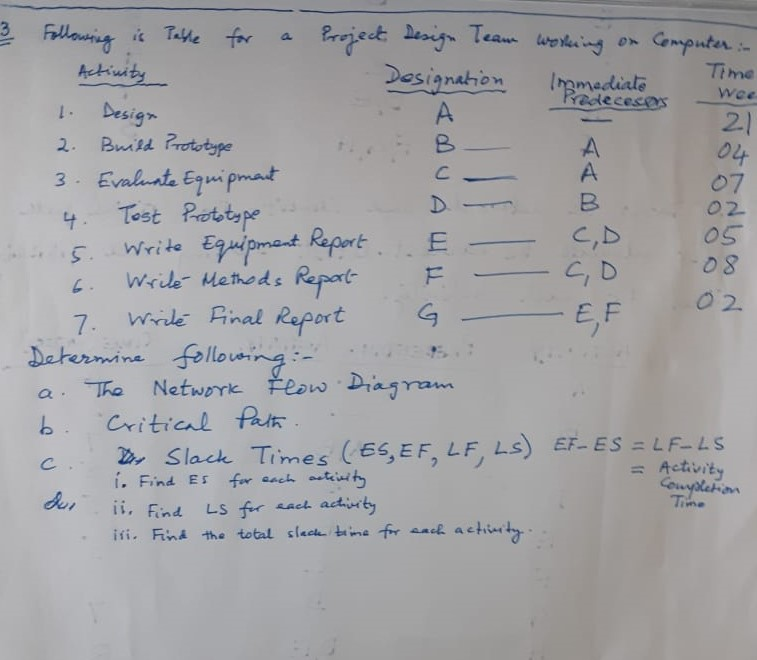 3 Following is Table for a Project Design Team working on Computer :-
Activity Designation Immediate Predecesors Time Wee
1. Design A — 21
2. Build Prototype B — A 04
3. Evaluate Equipment C — A 07
4. Test Prototype D — B 02
5. Write Equipment Report E — C,D 05
6. Write Methods Report F — C,D 08
7. Write Final Report G — E,F 02
Determine following :-
a. The Network Flow Diagram
b. Critical Path.
c. Slack Times (ES, EF, LF, LS) EF-ES = LF-LS
= Activity
Completion
Time
i. Find ES for each activity
ii. Find LS for each activity
iii. Find the total slack time for each activity.